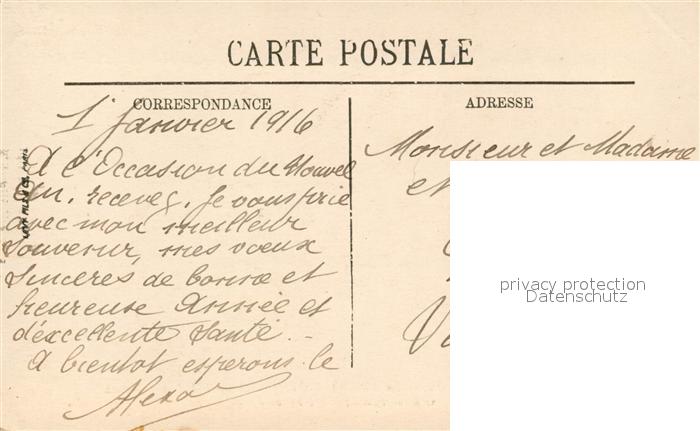 CARTE POSTALE
CORRESPONDANCE
ADRESSE
1r janvier 1916
A l'Occasion du Nouvel
An, recevez, je vous prie
avec mon meilleur
souvenir, mes voeux
sinceres de bonne et
heureuse Année et
d'excellente Santé. -
A bientot esperons le
Alexa
Monsieur et Madame
et
privacy protection
Datenschutz